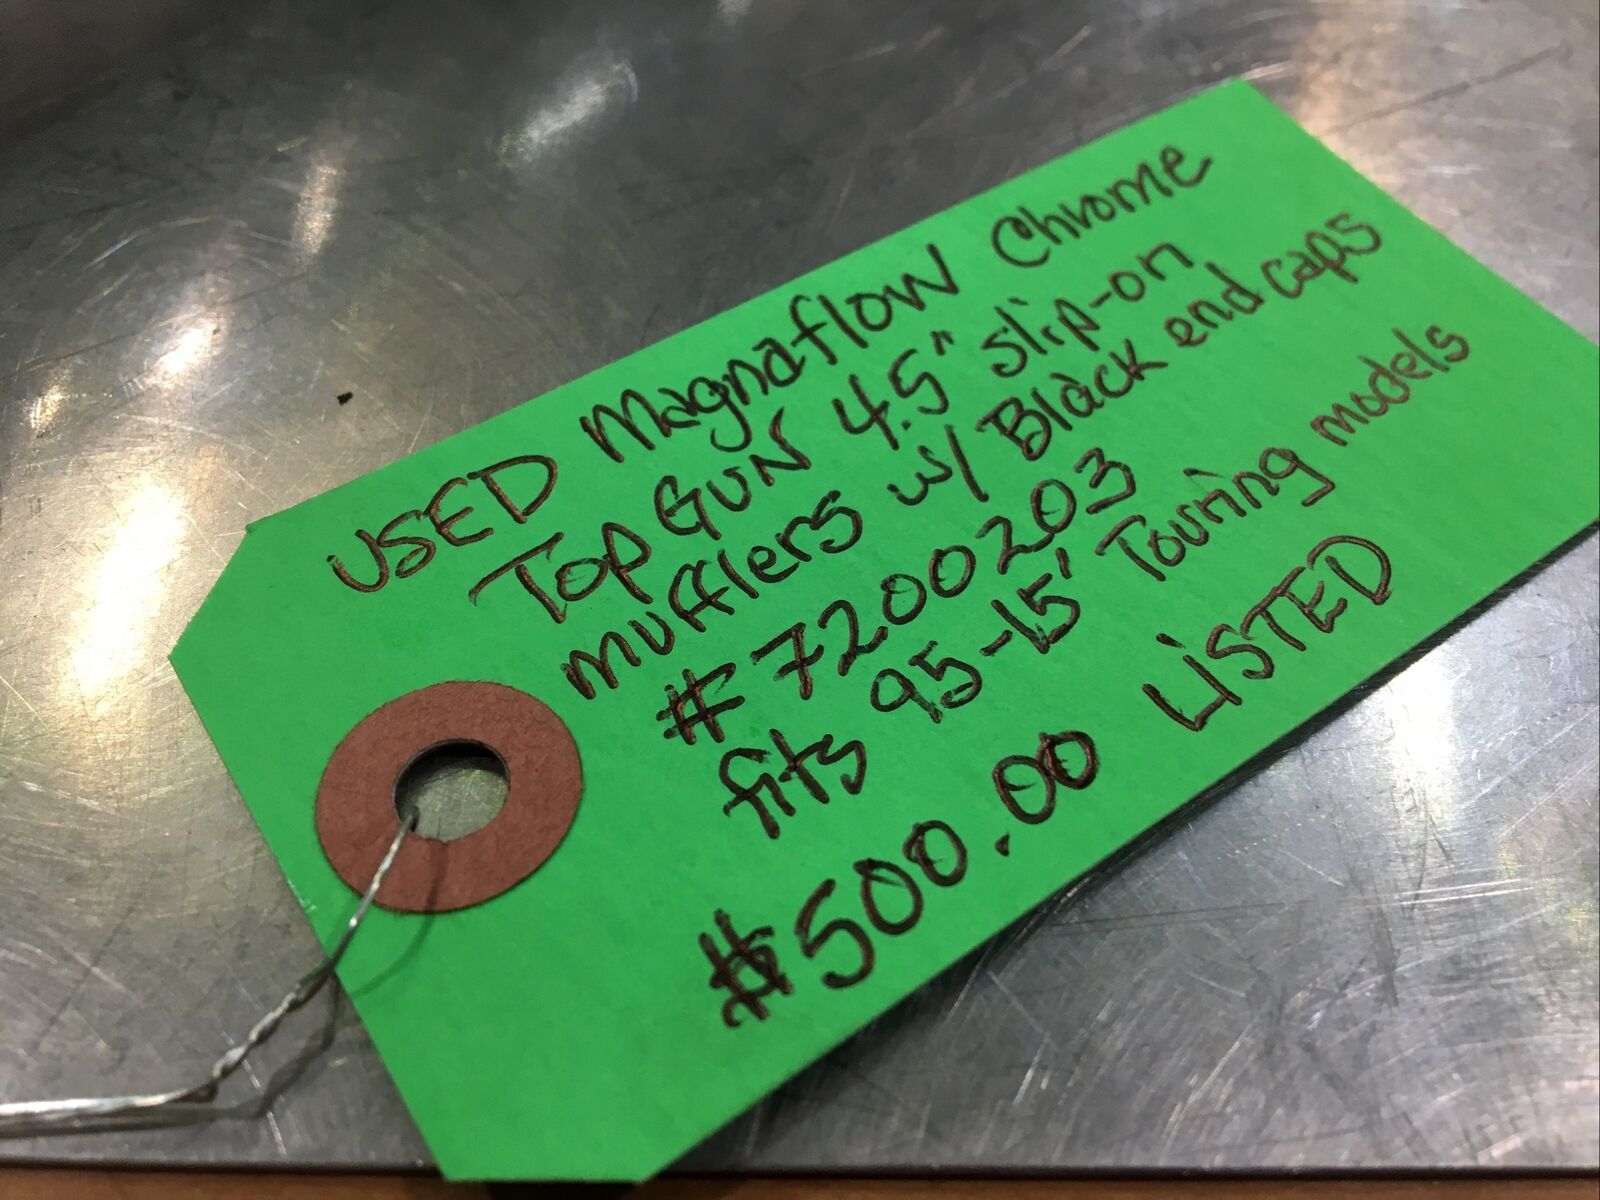 USED Magnaflow Chrome
Top GUN 4.5" slip-on
mufflers w/ Black end caps
# 7200203
fits 95-15' Touring models
$500.00 LiSTED